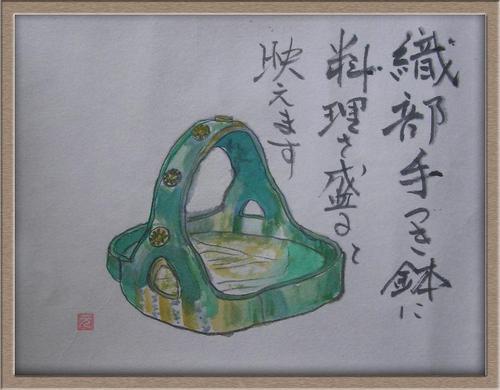 織部手つき鉢に
料理を盛ると
映えます